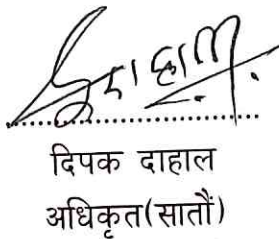 दिपक दाहाल
अधिकृत(सातौं)